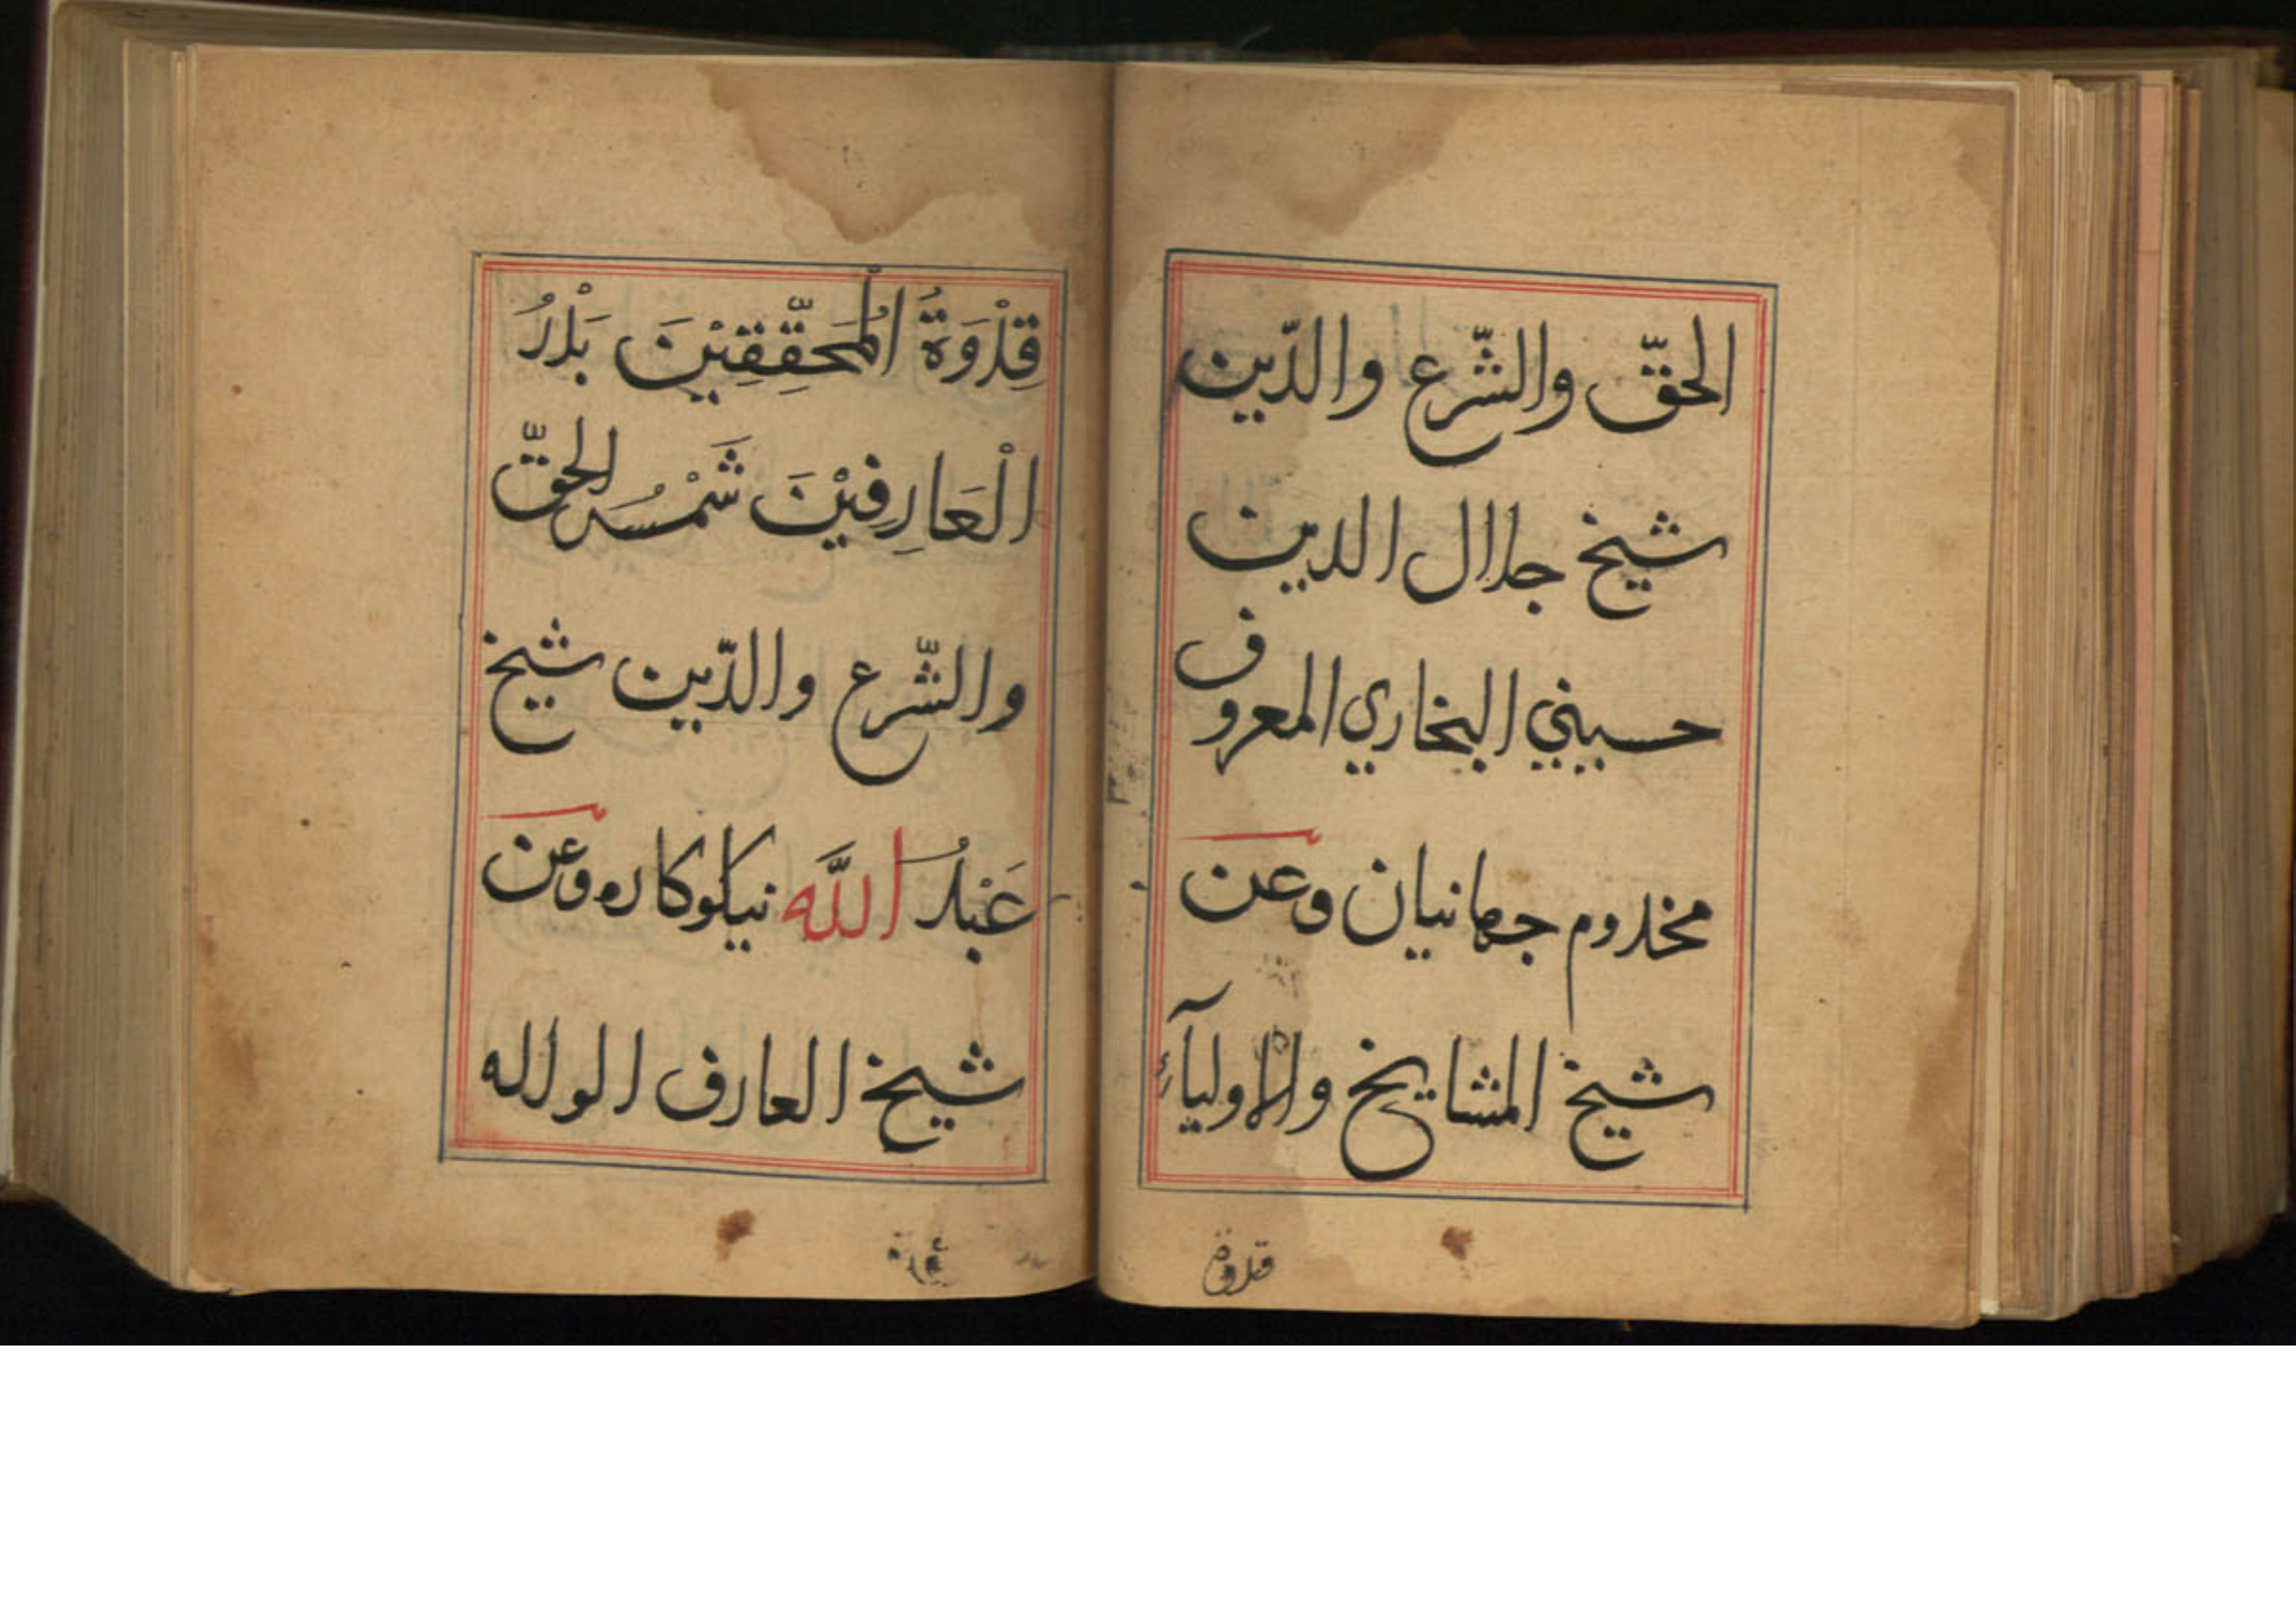 الحقّ والشّرع والدّين
شيخ جلال الدين
حسيني البخاري المعروف
مخدوم جهانيان وعن
شيخ المشايخ والاوليآء
قدوة
قِدْوَةُ الْمُحَقِّقِيْنَ بَدْرُ
الْعَارِفِيْنَ شَمْسُ الحقّ
والشّرع والدّين شيخ
عَبْدُ اللَّه نيكوكاره وعن
شيخ العارف الواله